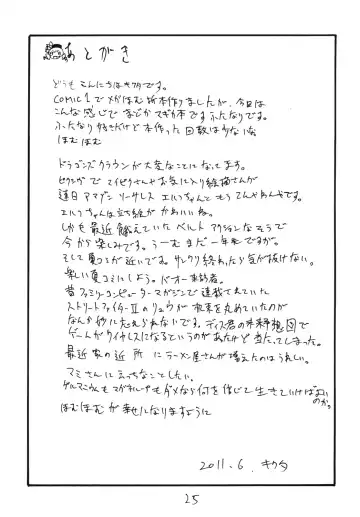 あとがき
どうもこんにちはキクタです。
COMIC1でメガほむ新本作りましたが、今回は
こんな感じでまどかマギカ本ですふたなりです。
ふたなり好きだけど本作った回数は少ないな
ほむほむ
ドラゴンズクラウンが大変なことになってます。
でマイピクさんやお気に入り絵描さんが
連日アマゾンソーサレスエルフちゃんともうてんやわんやです。
エルフちゃんは立ち絵がかわいいね。
しかも最近飢えていたベルトアクションなそうで
今から楽しみです。うーむまだ一年先ですが。
そして夏コミが近いです。サンクリ終わったら気が抜けない。
楽しい夏コミにしよう。バオー来訪者。
昔ファミリーコンピューターマガジンで連載されていた
ストリートファイターⅡのリュウが
なんか妙に忘れられないです。
ゲームがタイヤレスになるというのがあたけど当たってしまった。
最近家の近所にラーメン屋さんが増えたのはうれしい。
マミさんにえっちなことしたい。
ゲルマニウムもマグネループもダメなら何を信じて生きていけばよいのか。
ほむほむが幸せになりますように
2011.6. キクタ
25